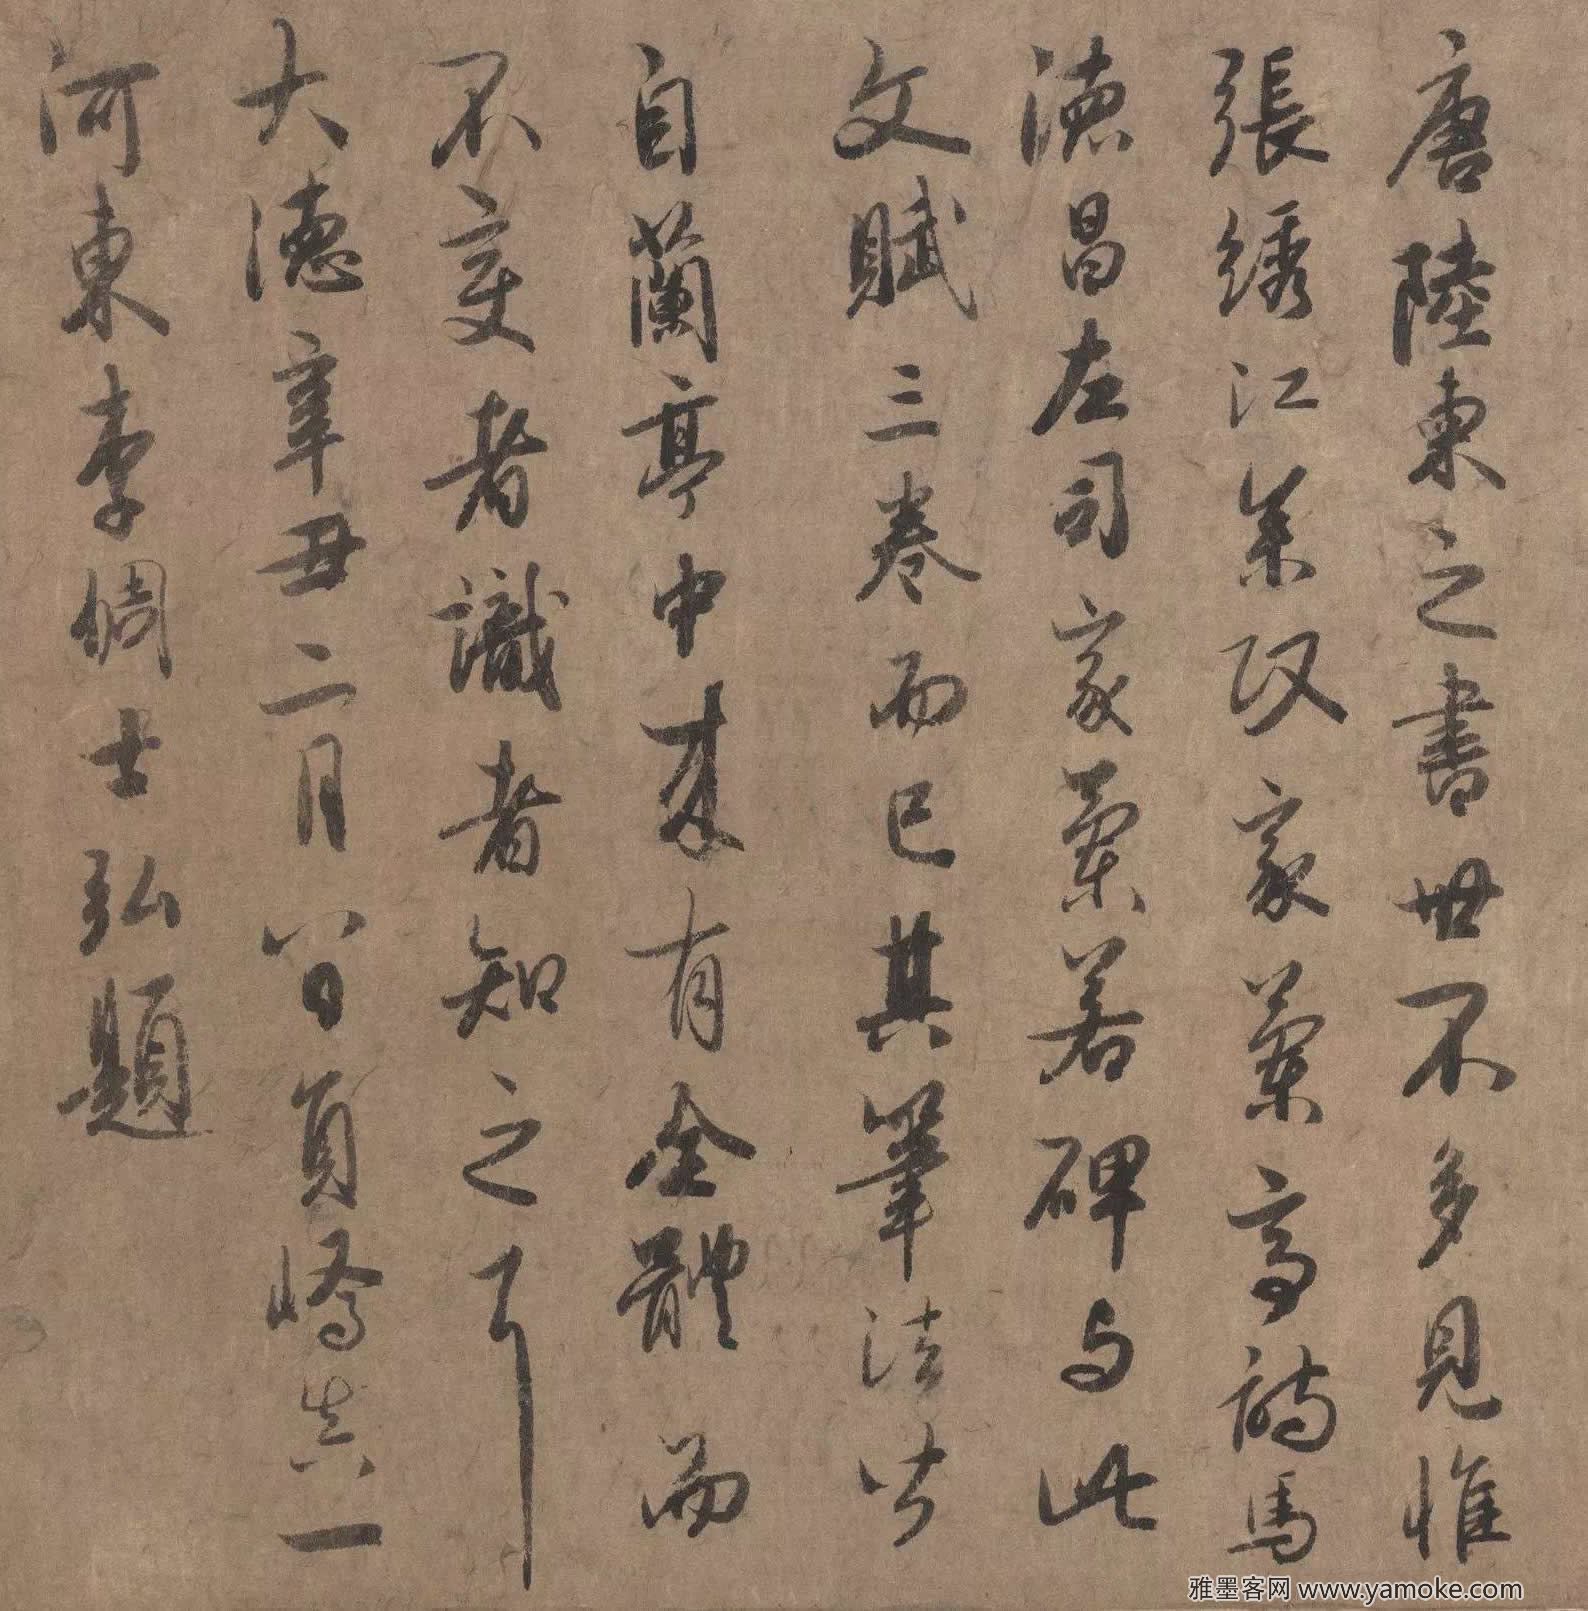 唐陸柬之書世不多見惟
張綉江叅政家蘭亭詩馬
德昌左司家蘭若碑与此
文賦三卷而已其筆法皆
自蘭亭中来有全體而
不变者識者知之耳
大德辛丑二月八日員嶠真一
河東李倜士弘題
雅墨客网 www.yamoke.com